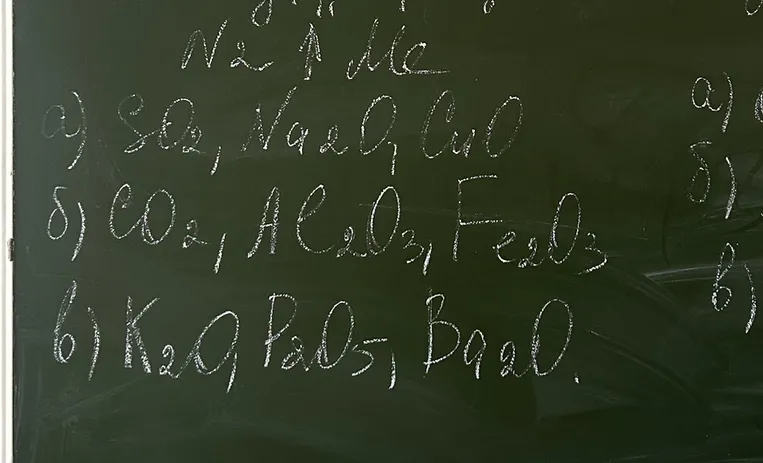 N2 ↑ Me
а) SO₂, Na₂O, CuO
б) CO₂, Al₂O₃, Fe₂O₃
в) K₂O, P₂O₅, Ba₂O.
а)
б)
в)